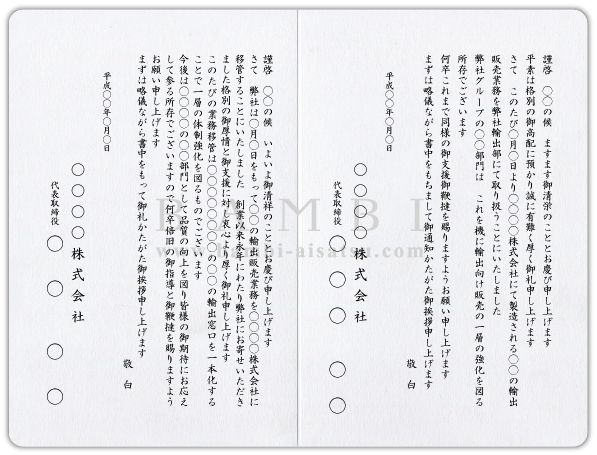 謹啓　〇〇の候　ますます御清栄のこととお慶び申し上げます
平素は格別の御高配に預かり誠に有難く厚く御礼申し上げます
さて　このたび〇月〇日より〇〇〇〇株式会社にて製造される〇〇の輸出
販売業務を弊社輸出部にて取り扱うことにいたしました
弊社グループの〇〇部門は　これを機に輸出向け販売の一層の強化を図る
所存でございます
何卒これまで同様の御支援御鞭撻を賜りますようお願い申し上げます
まずは略儀ながら書中をもちまして御通知かたがた御挨拶申し上げます
敬白
平成〇〇年〇月〇日
〇〇〇〇株式会社
代表取締役　〇〇〇〇
謹啓　〇〇の候　いよいよ御清祥のこととお慶び申し上げます
さて　弊社は〇月〇日をもって〇〇の輸出販売業務を〇〇〇〇株式会社に
移管することにいたしました　創業以来永年にわたり弊社にお寄せいただき
ました格別の御厚情と御支援に対し衷心より厚く御礼申し上げます
このたびの業務移管は〇〇〇〇〇〇〇の〇〇の輸出窓口を一本化する
ことで一層の体制強化を図るものでございます
今後は〇〇〇〇の〇〇部門として品質の向上を図り皆様の御期待にお応え
して参る所存でございますので何卒倍旧の御指導と御鞭撻を賜りますよう
お願い申し上げます
まずは略儀ながら書中をもって御礼かたがた御挨拶申し上げます
敬白
平成〇〇年〇月〇日
〇〇〇〇株式会社
代表取締役　〇〇〇〇
BAMBI
www.bambi-aisatsu.com